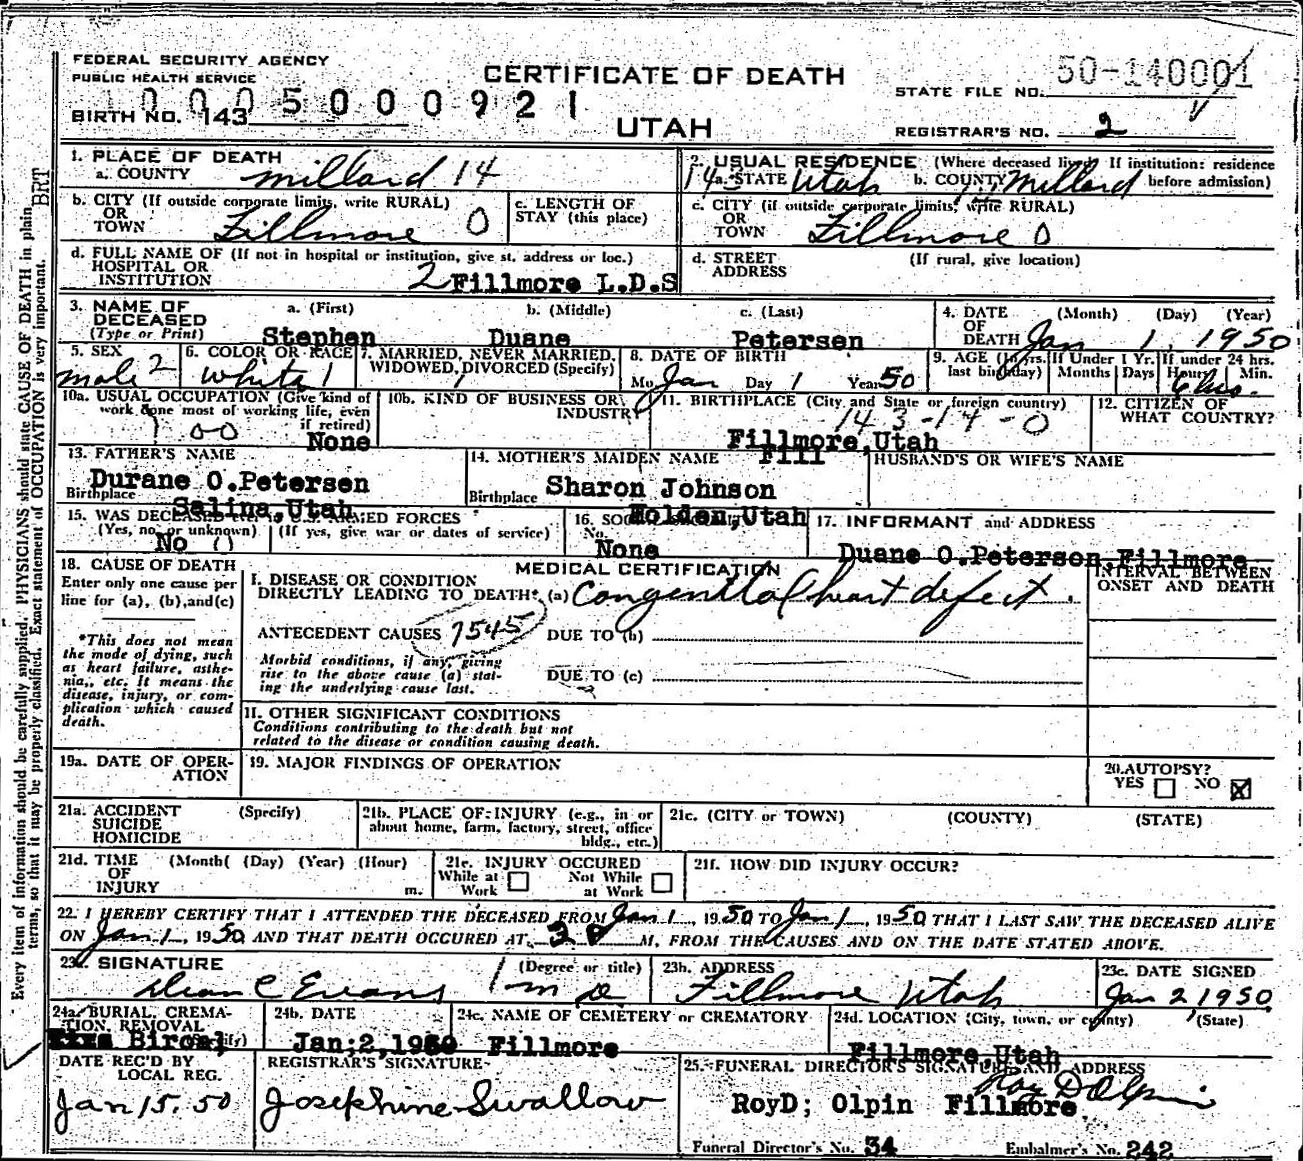 FEDERAL SECURITY AGENCY
PUBLIC HEALTH SERVICE
CERTIFICATE OF DEATH
UTAH
STATE FILE NO. 50-140001
1000500092 1
BIRTH NO. 143
REGISTRAR'S NO. 2
1. PLACE OF DEATH
a. COUNTY Millard 14
2. USUAL RESIDENCE (Where deceased lived. If institution: residence before admission)
143 a. STATE Utah b. COUNTY Millard
b. CITY (If outside corporate limits, write RURAL)
OR
TOWN Fillmore 0
c. LENGTH OF
STAY (this place)
c. CITY (if outside corporate limits, write RURAL)
OR
TOWN Fillmore 0
d. FULL NAME OF (If not in hospital or institution, give st. address or loc.)
HOSPITAL OR
INSTITUTION 2 Fillmore L.D.S
d. STREET (If rural, give location)
ADDRESS
3. NAME OF
DECEASED
(Type or Print)
a. (First) Stephen
b. (Middle) Duane
c. (Last) Petersen
4. DATE OF DEATH (Month) (Day) (Year)
Jan 1, 1950
5. SEX
male 2
6. COLOR OR RACE
white 1
7. MARRIED, NEVER MARRIED,
WIDOWED, DIVORCED (Specify)
1
8. DATE OF BIRTH
Mo. Jan Day 1 Year 50
9. AGE (In yrs. last birthday) If Under 1 Yr. Months Days If under 24 hrs. Hours Min.
6 hrs.
10a. USUAL OCCUPATION (Give kind of
work done most of working life, even
if retired)
1 00 None
10b. KIND OF BUSINESS OR
INDUSTRY
11. BIRTHPLACE (City and State or foreign country)
143-14-0
Fillmore,Utah
12. CITIZEN OF
WHAT COUNTRY?
13. FATHER'S NAME
Durane O.Petersen
Birthplace Salina,Utah
14. MOTHER'S MAIDEN NAME Fill
Sharon Johnson
Birthplace Holden,Utah
HUSBAND'S OR WIFE'S NAME
15. WAS DECEASED ever in U.S. ARMED FORCES
(Yes, no, or unknown) (If yes, give war or dates of service)
No 0
16. SOCIAL SECURITY
No. None
17. INFORMANT and ADDRESS
Duane O.Peterson,Fillmore
18. CAUSE OF DEATH
Enter only one cause per
line for (a), (b), and (c)
*This does not mean
the mode of dying, such
as heart failure, asthe-
nia, etc. It means the
disease, injury, or com-
plication which caused
death.
MEDICAL CERTIFICATION
I. DISEASE OR CONDITION
DIRECTLY LEADING TO DEATH* (a) Congenital heart defect.
ANTECEDENT CAUSES 7545 DUE TO (b)
Morbid conditions, if any, giving
rise to the above cause (a) stat-
ing the underlying cause last.
DUE TO (c)
II. OTHER SIGNIFICANT CONDITIONS
Conditions contributing to the death but not
related to the disease or condition causing death.
INTERVAL BETWEEN
ONSET AND DEATH
19a. DATE OF OPER-
ATION
19. MAJOR FINDINGS OF OPERATION
20. AUTOPSY?
YES NO
21a. ACCIDENT (Specify)
SUICIDE
HOMICIDE
21b. PLACE OF INJURY (e.g., in or
about home, farm, factory, street, office
bldg., etc.)
21c. (CITY or TOWN) (COUNTY) (STATE)
21d. TIME (Month( (Day) (Year) (Hour)
OF
INJURY m.
21e. INJURY OCCURED
While at Work Not While at Work
21f. HOW DID INJURY OCCUR?
22. I HEREBY CERTIFY THAT I ATTENDED THE DECEASED FROM Jan 1, 1950 TO Jan 1, 1950 THAT I LAST SAW THE DECEASED ALIVE
ON Jan. 1, 1950 AND THAT DEATH OCCURED AT 3 P M, FROM THE CAUSES AND ON THE DATE STATED ABOVE.
23a. SIGNATURE (Degree or title)
Dean C Evans 1 m D.
23b. ADDRESS
Fillmore Utah
23c. DATE SIGNED
Jan 2, 1950
24a. BURIAL, CREMA-
TION, REMOVAL
(Specify)
24b. DATE
Jan;2,1950
24c. NAME OF CEMETERY or CREMATORY
Fillmore
24d. LOCATION (City, town, or county) (State)
Fillmore,Utah
DATE REC'D BY
LOCAL REG.
Jan 15, 50
REGISTRAR'S SIGNATURE
Josephine Swallow
25. FUNERAL DIRECTOR'S SIGNATURE AND ADDRESS
Roy D Olpin
RoyD; Olpin Fillmore
Funeral Director's No. 34 Embalmer's No. 242
Every item of information should be carefully supplied. PHYSICIANS should state CAUSE OF DEATH in plain
terms, so that it may be properly classified. Exact statement of OCCUPATION is very important.
BRT